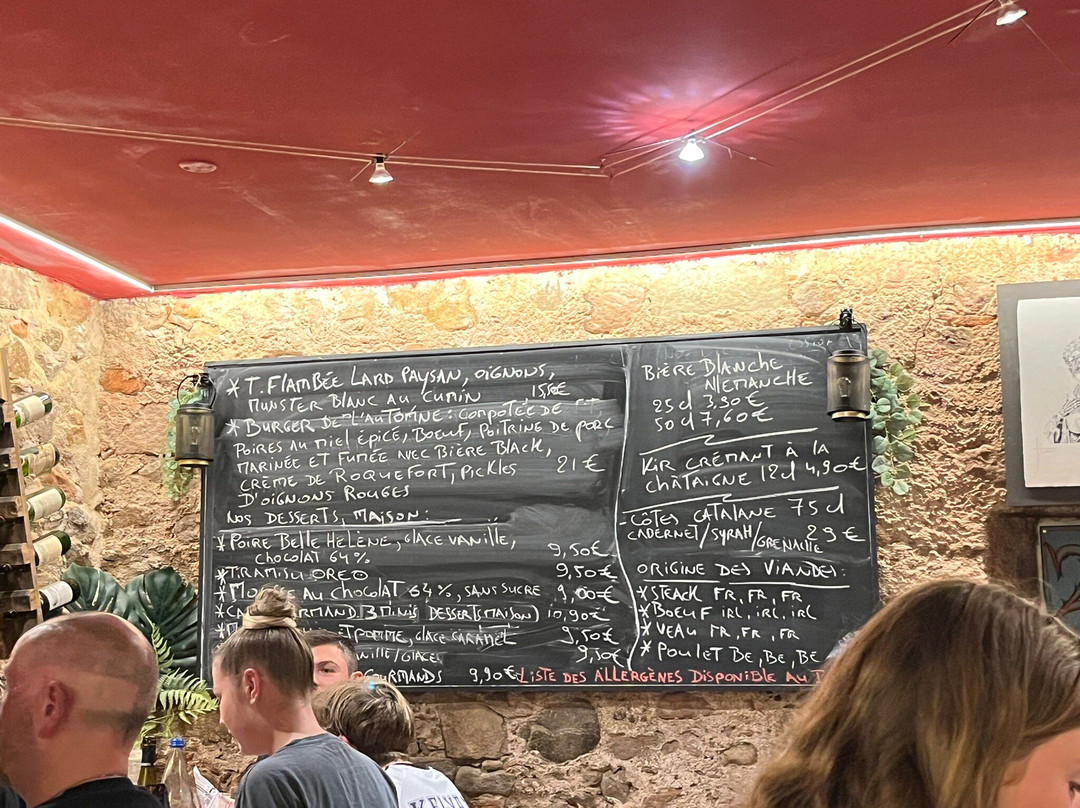 * T. FLAMBÉE LARD PAYSAN, OIGNONS,
MUNSTER BLANC AU CUMIN 15,50€
* BURGER DE L'AUTOMNE: COMPOTÉE DE
POIRES AU MIEL ÉPICÉ, BOEUF, POITRINE DE PORC
MARINÉE ET FUMÉE AVEC BIÈRE BLACK,
CRÈME DE ROQUEFORT, PICKLES 21€
D'OIGNONS ROUGES
NOS DESSERTS, MAISON:
* POIRE BELLE HÉLÈNE, GLACE VANILLE,
CHOCOLAT 64% 9,50€
* TIRAMISU OREO 9,50€
AU CHOCOLAT 64%, SANS SUCRE 9,00€
3 MINIS DESSERTS MAISON) 10,90€
POMME, GLACE CARAMEL 9,50€
9,50€
GOURMANDS 9,90€
BIÈRE BLANCHE
ALLEMANCHE
25 cl 3,90€
50 cl 7,60€
KIR CRÉMANT À LA
CHÂTAIGNE 12cl 4,90€
CÔTES CATALANE 75cl
CABERNET/SYRAH/GRENACHE 29€
ORIGINE DES VIANDES:
* STEACK FR, FR, FR
* BOEUF irl, irl, irl
* VEAU FR, FR, FR
* POULET BE, BE, BE
LISTE DES ALLERGÈNES DISPONIBLE AU